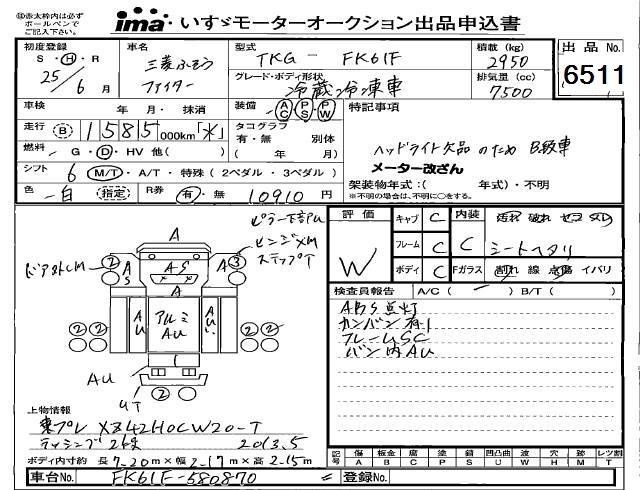 ◎赤太枠内は必ず
ボールペンで
ご記入下さい。
ima いすゞモーターオークション出品申込書
初度登録
S・H・R
25/6月
車名
三菱ふそう
ファイター
型式
TKG - FK61F
グレード・ボディ形状
冷蔵冷凍車
積載 (kg)
2950
排気量 (cc)
7500
出品 No.
6511
車検 年 月・抹消
装備 AC PS PW
特記事項
走行 (B) 1585000km「木」
タコグラフ
有・無 別体
( 年 月)
燃料 G・D・HV 他( )
ヘッドライト欠品のため B級車
メーター改ざん
シフト 6 M/T・A/T・特殊(2ペダル・3ペダル)
架装物年式:( 年式)・不明
※不明の場合は、不明に○をする。
色 白 (指定) R券 有・無 10910円
評価
W
キャブ C
フレーム C
ボディ C
内装 C
汚れ 破れ セコ ダレ
シートヘタリ
Fガラス 割れ 線 点傷 イバリ
検査員報告 A/C( ) B/T( )
ABS点灯
カンバン有1
フレームSC
バン内AU
ピラー下部AU
ヒンジXM
ステップT
ドアヨコLM
A
AS
AS
A
AU
アルミ
AU
AU
1
AU
UT
2
3
上物情報
東プレ XB42H0CW20-T
ラッシング2段 2013.5
ボディ内寸約 長7.20m×幅2.17m×高2.15m
記号 傷A 板金B 腐C 塗P 錆S 凹凸曲U 波W 穴H 跡M ﾚﾝﾂ割T
車台No. FK61F-580870
登録No.